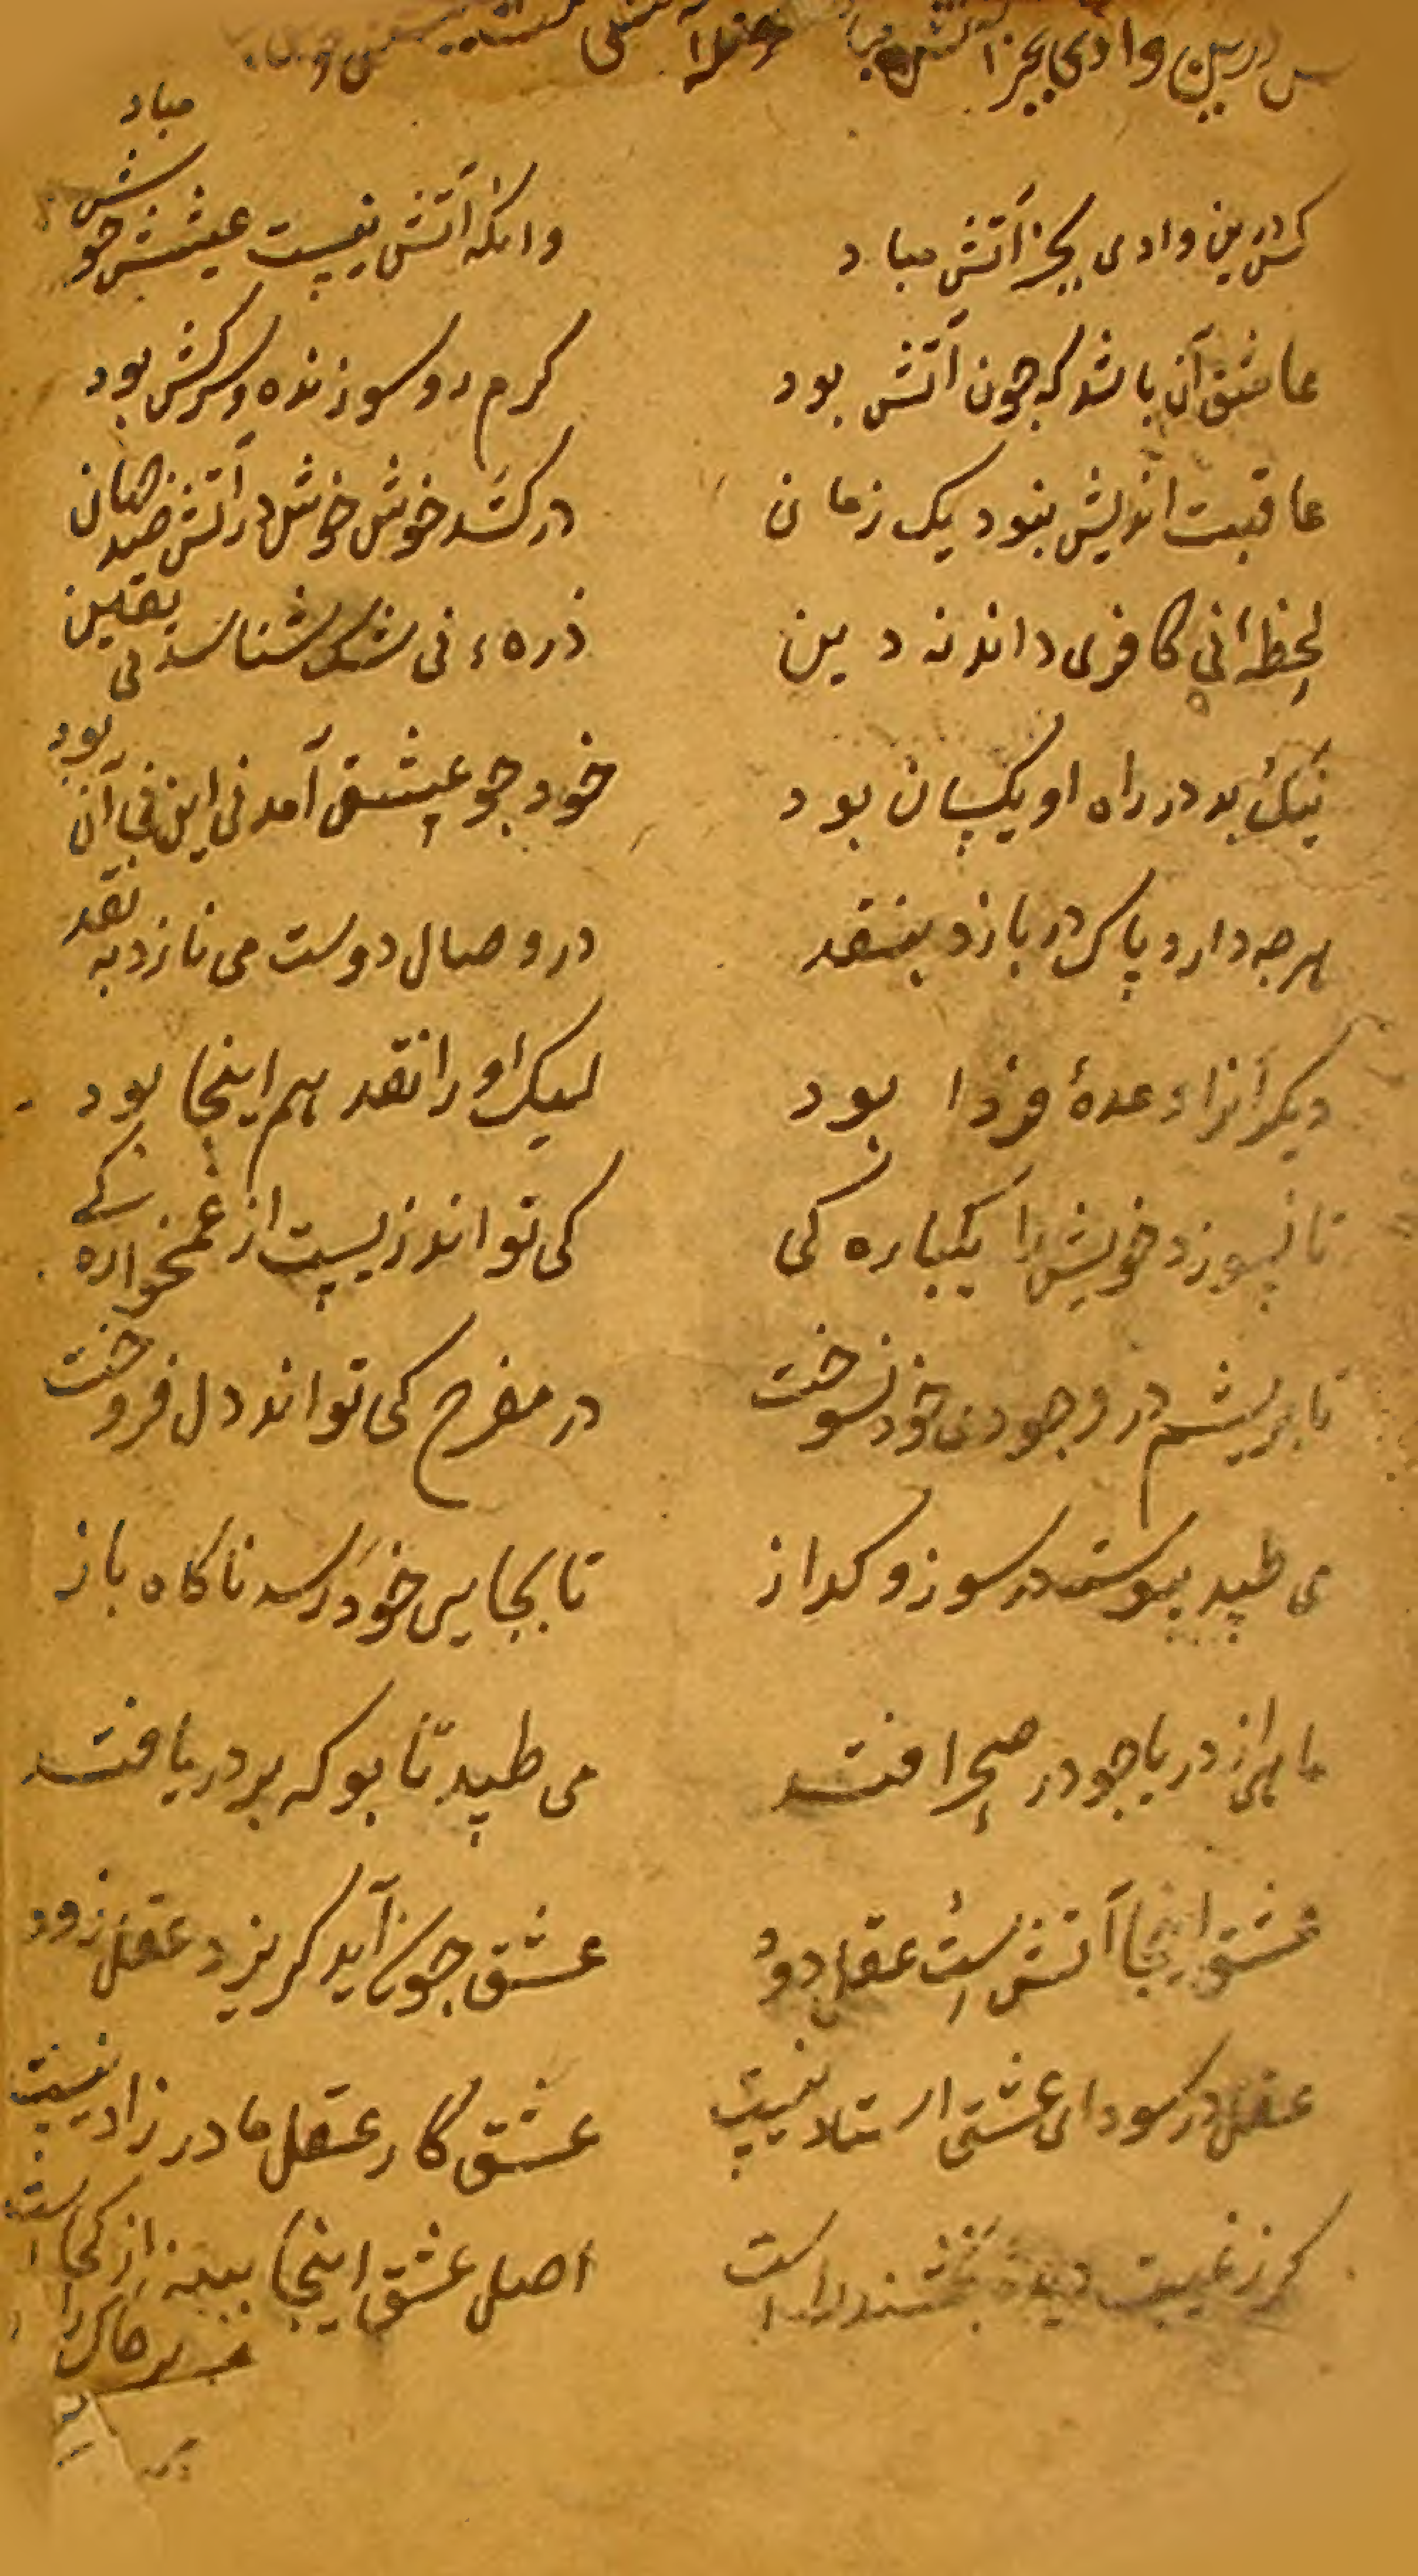 س درین وادی بجز آتش مباد
کس درین وادی بجز آتش مباد وانکه آتش نیست عیشش خوش مباد
عاشق آن باشد که چون آتش بود کرم رو سوزنده و سرکش بود
عاقبت اندیش نبود یک زمان درکشد خوش خوش در آتش صد جهان
لحظه‌ٔ نی کافری داند نه دین ذرهٔ نی شک شناسد نی یقین
نیک بد در راه او یکسان بود خود جو عشق آمد نی این نی آن بود
هرجه دارد پاک در بازد بنقد در وصال دوست می نازد به نقد
دیکرانرا وعدهٔ فردا بود لیک او را نقد هم اینجا بود
تا نسوزد خویش را یکباره کی کی تواند زیست از غمخواره کی
تا بریشم در وجودی خود نسوخت در مفرح کی تواند دل فروخت
می طپد پیوسته در سوز و کداز تا بجایی خود رسد ناکاه باز
ماهی از دریا جو در صحرا فتد می طپد تا بو که بر دریا فتد
عشق اینجا آتش است عقل دود عشق جون آید کریزد عقل زود
عقل در سودای عشق استاد نیست عشق کار عقل مادر زاد نیست
کر ز غیبت دیدهٔ بخشند راست اصل عشق اینجا ببینی از کجاست